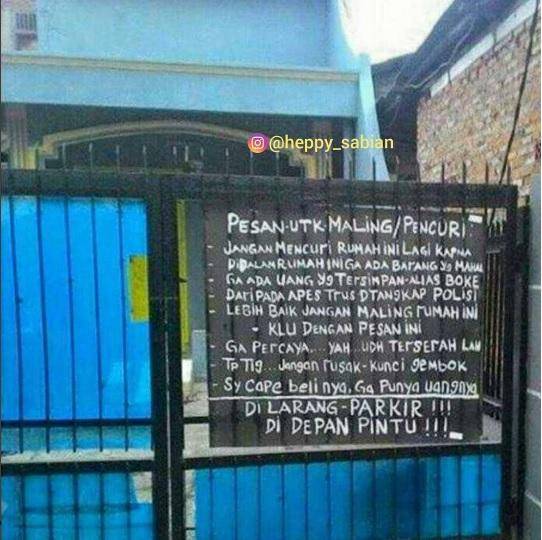 @heppy_sabian
PESAN-UTK-MALING/PENCURI:
- JANGAN MENCURI RUMAH INI LAGI KARNA
- DIDALAN RUMAH INI GA ADA BARANG YG MAHAL
- GA ADA UANG YG TERSIMPAN-ALIAS BOKE
- DARI PADA APES TRUS DTANGKAP POLISI
- LEBIH BAIK JANGAN MALING RUMAH INI
- KLU DENGAN PESAN INI
- GA PERCAYA....YAH..UDH TERSERAH LAH
TP Tlg...Jangan rusak-kunci gembok
- Sy Cape beli nya. Ga Punya uangnya
DI LARANG-PARKIR !!!
DI DEPAN PINTU !!!